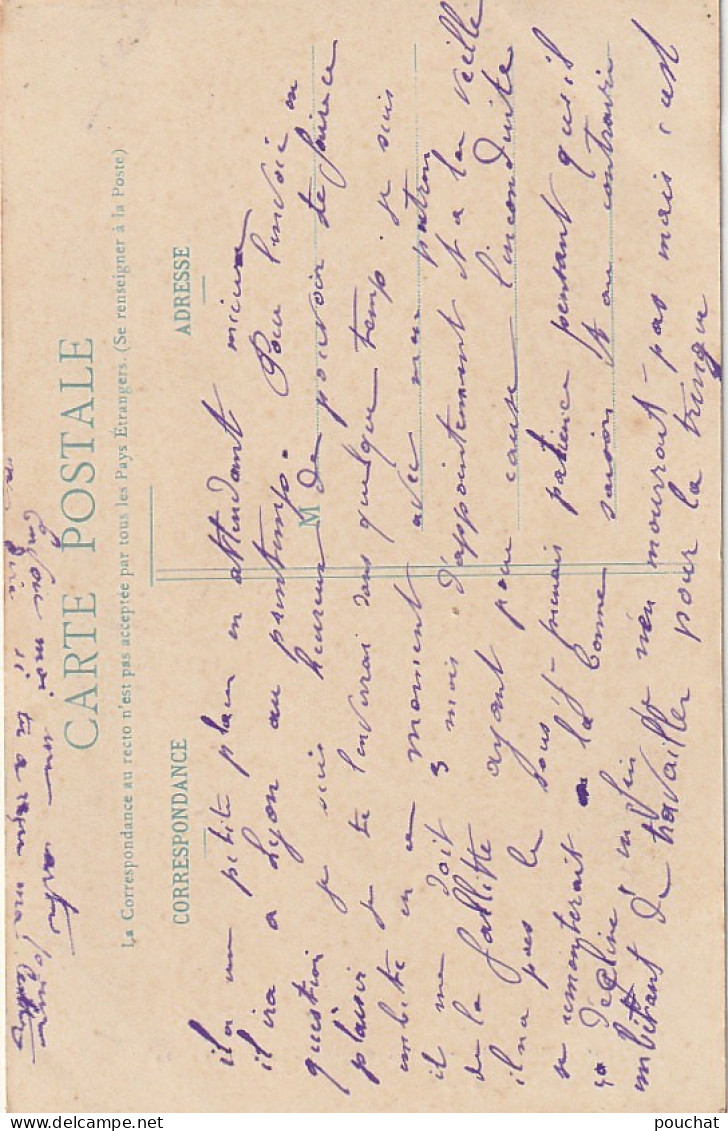 CARTE POSTALE
La Correspondance au recto n'est pas acceptée par tous les Pays Étrangers. (Se renseigner à la Poste)
CORRESPONDANCE
ADRESSE
M
il a un petite place en attendant mieux
il ira a Lyon au printemps. Pour l'envoie en
question je suis heureux de pouvoir te faire ce
plaisir je te l'enverrai dans quelque temp. je suis
embeté en ce moment avec mon patron
il me doit 3 mois d'appointement et a la veille
de la faillitte ayant pour cause l'inconduite
il na pas le sous. Je prenais patience pensant qu'il
se remonterait a la bonne saison Et au contraire
ça décline enfin n'en mourront pas mais c'est
embêtant de travailler pour la tringue
Envoie moi une carte pour
me dire si tu a reçu ma
delcampe.net
pouchat